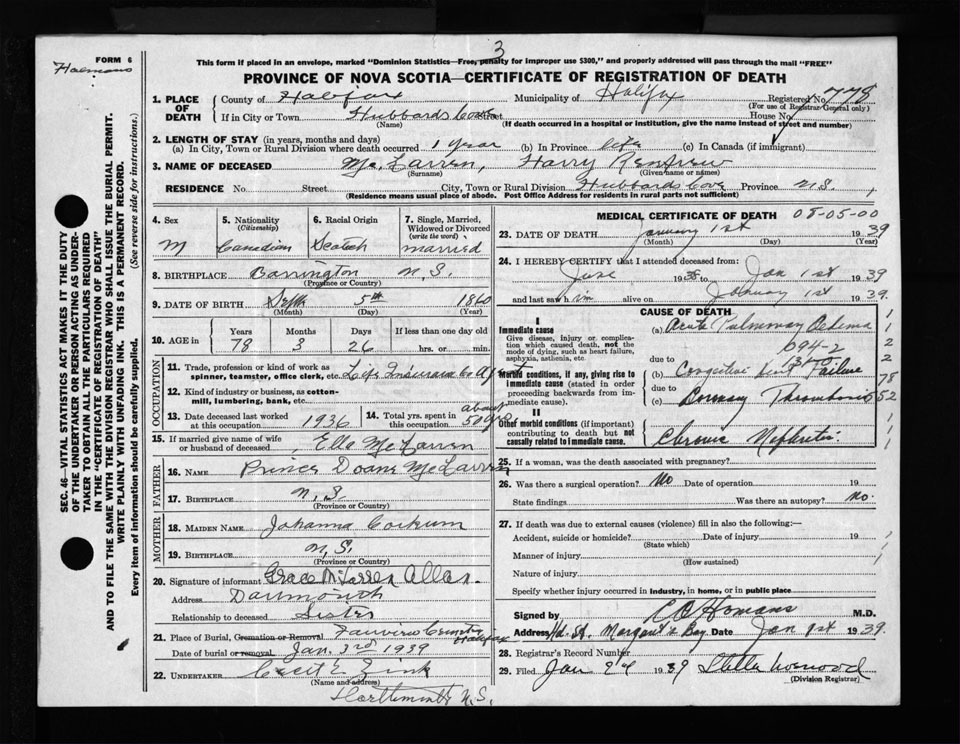 3
FORM 6
Halmans
This form if placed in an envelope, marked "Dominion Statistics—Free, penalty for improper use $300," and properly addressed will pass through the mail "FREE"
PROVINCE OF NOVA SCOTIA—CERTIFICATE OF REGISTRATION OF DEATH
SEC. 46—VITAL STATISTICS ACT MAKES IT THE DUTY
OF THE UNDERTAKER OR PERSON ACTING AS UNDER-
TAKER TO OBTAIN ALL THE PARTICULARS REQUIRED
IN THE "CERTIFICATE OF REGISTRATION OF DEATH"
AND TO FILE THE SAME WITH THE DIVISION REGISTRAR WHO SHALL ISSUE THE BURIAL PERMIT.
WRITE PLAINLY WITH UNFADING INK. THIS IS A PERMANENT RECORD.
Every item of information should be carefully supplied. (See reverse side for instructions.)
1. PLACE OF DEATH County of Halifax Municipality of Halifax Registered No. 778
(For use of Registrar General only)
If in City or Town Hubbards Cove Street House No.
(Name) (If death occurred in a hospital or institution, give the name instead of street and number)
2. LENGTH OF STAY (in years, months and days)
(a) In City, Town or Rural Division where death occurred 1 year (b) In Province life (c) In Canada (if immigrant)
3. NAME OF DECEASED McLarren, Harry Renfrew
(Surname) (Given name or names)
RESIDENCE No. Street City, Town or Rural Division Hubbards Cove Province N.S.
(Residence means usual place of abode. Post Office Address for residents in rural parts not sufficient)
4. Sex M
5. Nationality (Citizenship) Canadian
6. Racial Origin Scotch
7. Single, Married, Widowed or Divorced (write the word) married
8. BIRTHPLACE Barrington N.S.
(Province or Country)
9. DATE OF BIRTH Sept 5th 1860
(Month) (Day) (Year)
10. AGE in Years 78 Months 3 Days 26 If less than one day old hrs. or min.
OCCUPATION
11. Trade, profession or kind of work as
spinner, teamster, office clerk, etc. Life Insurance Co Agent
12. Kind of industry or business, as cotton-
mill, lumbering, bank, etc.
13. Date deceased last worked at this occupation 1936
14. Total yrs. spent in this occupation about 50 yrs
15. If married give name of wife
or husband of deceased Ella McLarren
FATHER
16. NAME Prince Doane McLarren
17. BIRTHPLACE N.S.
(Province or Country)
MOTHER
18. MAIDEN NAME Johanna Corkum
19. BIRTHPLACE N.S.
(Province or Country)
20. Signature of informant Grace McLarren Allan
Address Dartmouth
Relationship to deceased Sister
21. Place of Burial, Cremation or Removal Fairview Cemetery Halifax
Date of burial or removal Jan. 3rd 1939
22. UNDERTAKER Cecil E. Zink
(Name and address)
Dartmouth N.S.
MEDICAL CERTIFICATE OF DEATH 08-05-00
23. DATE OF DEATH January 1st 1939
(Month) (Day) (Year)
24. I HEREBY CERTIFY that I attended deceased from:
June 1938 to Jan 1st 1939
and last saw him alive on January 1st 1939.
CAUSE OF DEATH
I
Immediate cause
Give disease, injury or compli-
cation which caused death, not the
mode of dying, such as heart failure,
asphyxia, asthenia, etc.
(a) Acute Pulmonary Oedema
094-2
due to
Morbid conditions, if any, giving rise to
immediate cause (stated in order
proceeding backwards from im-
mediate cause).
(b) Congestive heart Failure
due to
(c) Coronary Thrombosis
II
Other morbid conditions (if important)
contributing to death but not
causally related to immediate cause.
Chronic Nephritis
1
1
2
2
78
52
1
1
25. If a woman, was the death associated with pregnancy?
26. Was there a surgical operation? No Date of operation 19
State findings Was there an autopsy? No.
27. If death was due to external causes (violence) fill in also the following:—
Accident, suicide or homicide? Date of injury 19
(State which)
Manner of injury
(How sustained)
Nature of injury
Specify whether injury occurred in industry, in home, or in public place
Signed by C C Homans M.D.
Address Hd. St. Margarets Bay Date Jan 1st 1939
28. Registrar's Record Number
29. Filed Jan 2nd 1939 Stella
(Division Registrar)